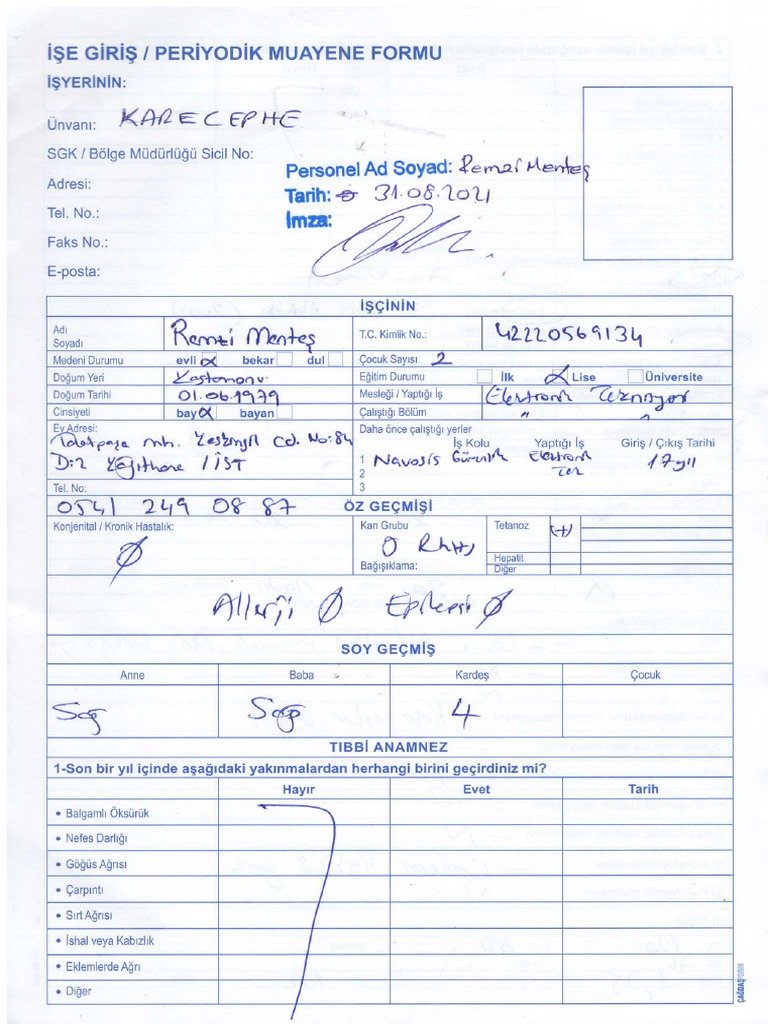 İŞE GİRİŞ / PERİYODİK MUAYENE FORMU
İŞYERİNİN:
Ünvanı: KARECEPHE
SGK / Bölge Müdürlüğü Sicil No:
Personel Ad Soyad: Remzi Menteş
Adresi:
Tarih: 31.08.2021
Tel. No.:
İmza:
Faks No.:
E-posta:
İŞÇİNİN
Adı Soyadı Remzi Menteş T.C. Kimlik No.: 42220569134
Medeni Durumu evli bekar dul Çocuk Sayısı 2
Doğum Yeri Kastamonu Eğitim Durumu İlk Lise Üniversite
Doğum Tarihi 01.06.1979 Mesleği / Yaptığı İş Elektronik Teknisyer
Cinsiyeti bay bayan Çalıştığı Bölüm " "
Ev Adresi: Daha önce çalıştığı yerler
Talatpaşa mh. Cd. No:84 İş Kolu Yaptığı İş Giriş / Çıkış Tarihi
D:2 Kağıthane / İST 1 Navosis Güvenlik Elektronik Tek 17 yıl
2
Tel. No.: 3
0541 249 08 87 ÖZ GEÇMİŞİ
Konjenital / Kronik Hastalık: Ø Kan Grubu O Rh(+) Tetanoz (+)
Hepatit
Bağışıklama: Diğer
Allerji Ø Epilepsi Ø
SOY GEÇMİŞ
Anne Baba Kardeş Çocuk
Sağ Sağ 4
TIBBİ ANAMNEZ
1-Son bir yıl içinde aşağıdaki yakınmalardan herhangi birini geçirdiniz mi?
Hayır Evet Tarih
• Balgamlı Öksürük
• Nefes Darlığı
• Göğüs Ağrısı
• Çarpıntı
• Sırt Ağrısı
• İshal veya Kabızlık
• Eklemlerde Ağrı
• Diğer
ÇAĞDAŞFORM